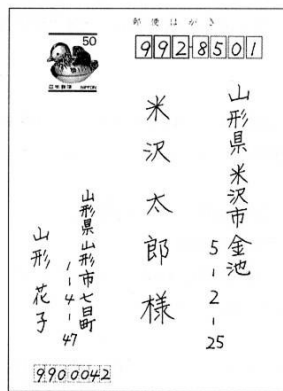 郵便はがき
50
日本郵便 NIPPON
992-8501
山形県米沢市金池
5-2-25
米沢太郎様
山形県山形市七日町
1-4-47
山形花子
9900042